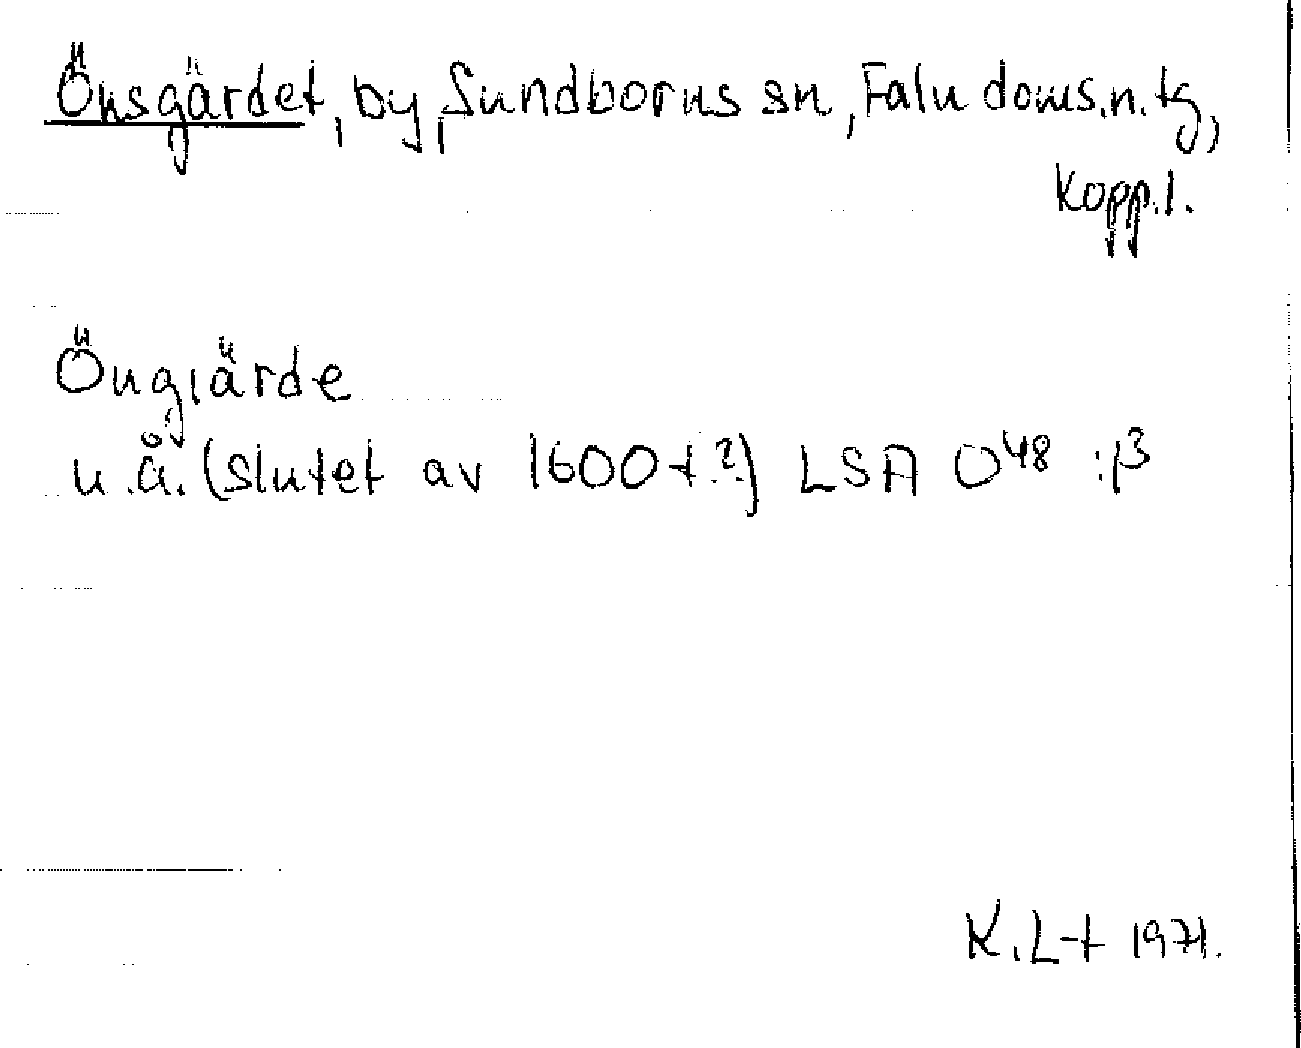 Önsgärdet, by, Sundborns sn, Falu doms.n. tg,
Kopp.l.
Öngiärde
u.å. (slutet av 1600-t.?) LSA O48 :β
K.L-t 1971.